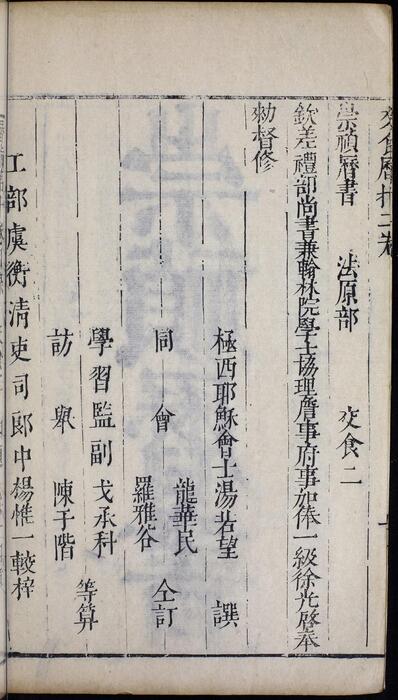 交食曆指二卷
崇禎曆書 法原部 交食二
欽差禮部尚書兼翰林院學士協理詹事府事加俸一級徐光啓奉
勑督修
極西耶穌會士湯若望 譔
同會 龍華民
羅雅谷 仝訂
學習監副 戈承科
訪舉 陳于階 等算
工部虞衡清吏司郎中楊惟一較梓